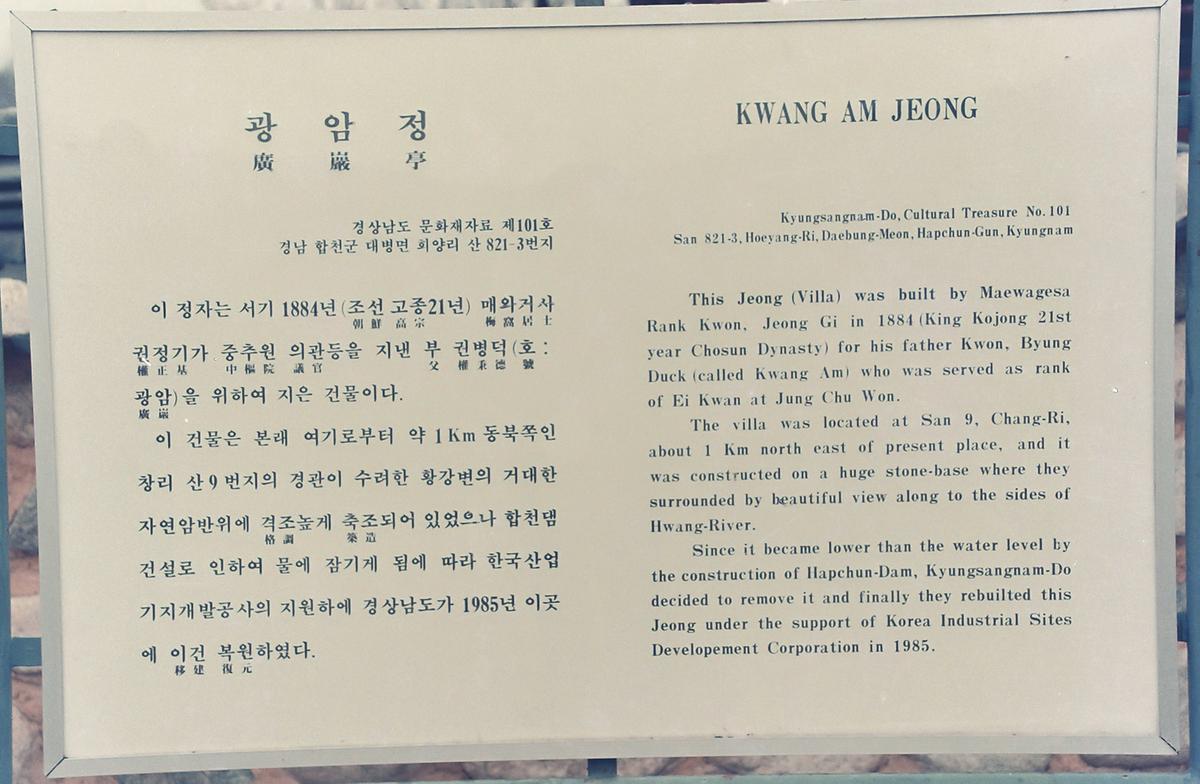 광 암 정
廣 巖 亭
경상남도 문화재자료 제101호
경남 합천군 대병면 회양리 산 821-3번지
이 정자는 서기 1884년 (조선 고종21년) 매와거사
朝鮮 高宗 梅窩居士
권정기가 중추원 의관등을 지낸 부 권병덕 (호 :
權正基 中樞院 議官 父 權秉德 號
광암) 을 위하여 지은 건물이다.
廣巖
이 건물은 본래 여기로부터 약 1Km 동북쪽인
창리 산 9 번지의 경관이 수려한 황강변의 거대한
자연암반위에 격조높게 축조되어 있었으나 합천댐
格調 築造
건설로 인하여 물에 잠기게 됨에 따라 한국산업
기지개발공사의 지원하에 경상남도가 1985년 이곳
에 이건 복원하였다.
移建 復元
KWANG AM JEONG
Kyungsangnam-Do, Cultural Treasure No. 101
San 821-3, Hoeyang-Ri, Daebung-Meon, Hapchun-Gun, Kyungnam
This Jeong (Villa) was built by Maewagesa
Rank Kwon, Jeong Gi in 1884 (King Kojong 21st
year Chosun Dynasty) for his father Kwon, Byung
Duck (called Kwang Am) who was served as rank
of Ei Kwan at Jung Chu Won.
The villa was located at San 9, Chang-Ri,
about 1 Km north east of present place, and it
was constructed on a huge stone-base where they
surrounded by beautiful view along to the sides of
Hwang-River.
Since it became lower than the water level by
the construction of Hapchun-Dam, Kyungsangnam-Do
decided to remove it and finally they rebuilted this
Jeong under the support of Korea Industrial Sites
Developement Corporation in 1985.